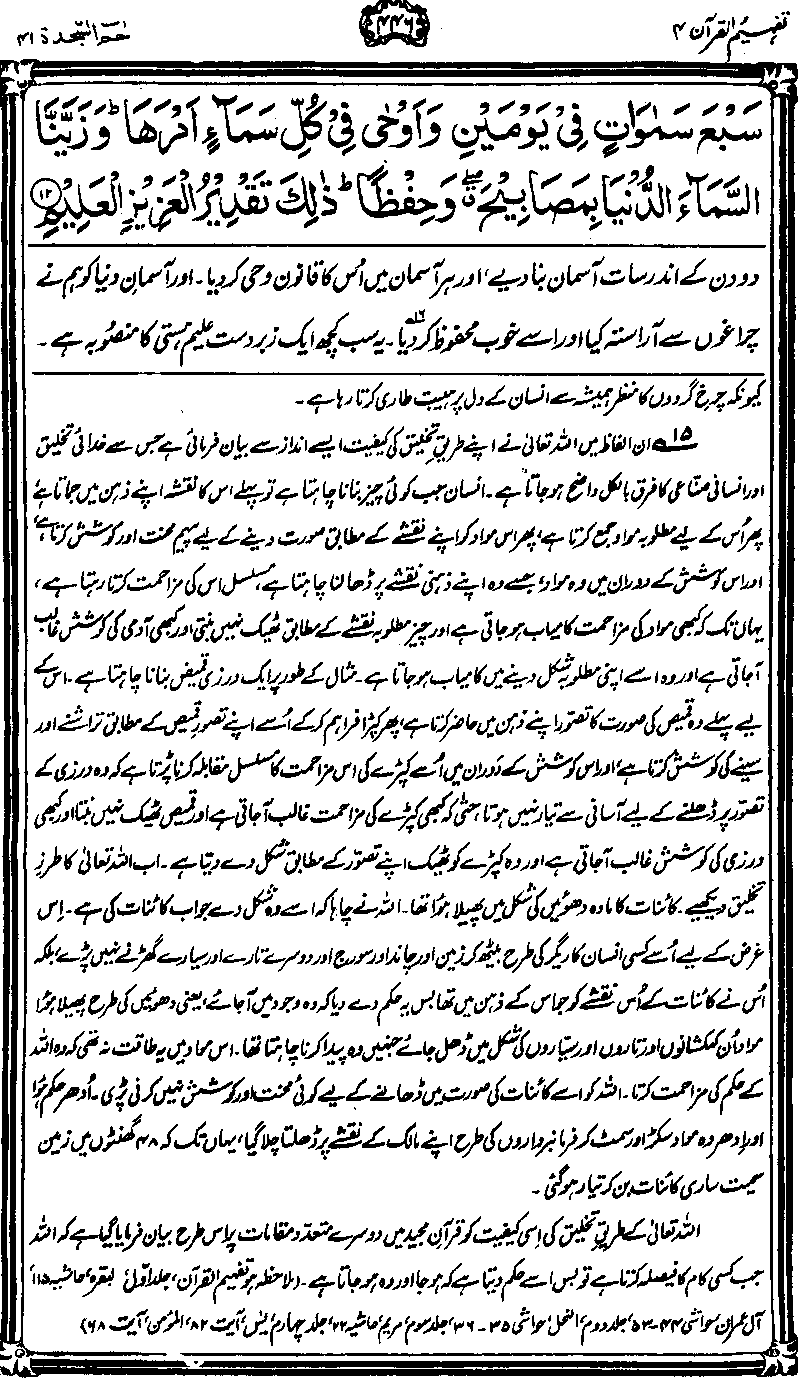 تفہیم القرآن ۴
۴۴۶
حٰمٓ السّجدۃ ۴۱
سَبْعَ سَمٰوَاتٍ فِیْ یَوْمَیْنِ وَاَوْحٰی فِیْ کُلِّ سَمَآءٍ اَمْرَھَا ؕ وَزَیَّنَّا
السَّمَآءَ الدُّنْیَا بِمَصَابِیْحَ ۖ وَحِفْظًا ؕ ذٰلِکَ تَقْدِیْرُ الْعَزِیْزِ الْعَلِیْمِ ۱۲
دو دن کے اندر سات آسمان بنا دیے، اور ہر آسمان میں اُس کا قانون وحی کر دیا۔ اور آسمانِ دنیا کو ہم نے
چراغوں سے آراستہ کیا اور اسے خوب محفوظ کر دیا۱۶۔ یہ سب کچھ ایک زبردست علیم ہستی کا منصوبہ ہے۔
کیونکہ چرخِ گردوں کا منظر ہمیشہ سے انسان کے دل پر ہیبت طاری کرتا رہا ہے۔
۱۵؎ ان الفاظ میں اللہ تعالیٰ نے اپنے طریقِ تخلیق کی کیفیت ایسے انداز سے بیان فرمائی ہے جس سے خدائی تخلیق
اور انسانی صناعی کا فرق بالکل واضح ہو جاتا ہے۔ انسان جب کوئی چیز بنانا چاہتا ہے تو پہلے اس کا نقشہ اپنے ذہن میں جماتا ہے،
پھر اُس کے لیے مطلوبہ مواد جمع کرتا ہے، پھر اس مواد کو اپنے نقشے کے مطابق صورت دینے کے لیے پیہم محنت اور کوشش کرتا ہے،
اور اس کوشش کے دوران میں وہ مواد، جسے وہ اپنے ذہنی نقشے پر ڈھالنا چاہتا ہے، مسلسل اس کی مزاحمت کرتا رہتا ہے،
یہاں تک کہ کبھی مواد کی مزاحمت کامیاب ہو جاتی ہے اور چیز مطلوبہ نقشے کے مطابق ٹھیک نہیں بنتی اور کبھی آدمی کی کوشش غالب
آ جاتی ہے اور وہ اسے اپنی مطلوبہ شکل دینے میں کامیاب ہو جاتا ہے۔ مثال کے طور پر ایک درزی قمیض بنانا چاہتا ہے۔ اس کے
لیے پہلے وہ قمیص کی صورت کا تصور اپنے ذہن میں حاضر کرتا ہے، پھر کپڑا فراہم کر کے اُسے اپنے تصورِ قمیص کے مطابق تراشنے اور
سینے کی کوشش کرتا ہے، اور اس کوشش کے دَوران میں اُسے کپڑے کی اس مزاحمت کا مسلسل مقابلہ کرنا پڑتا ہے کہ وہ درزی کے
تصوّر پر ڈھلنے کے لیے آسانی سے تیار نہیں ہوتا، حتّٰی کہ کبھی کپڑے کی مزاحمت غالب آ جاتی ہے اور قمیص ٹھیک نہیں بنتا اور کبھی
درزی کی کوشش غالب آ جاتی ہے اور وہ کپڑے کو ٹھیک اپنے تصوّر کے مطابق شکل دے دیتا ہے۔ اب اللہ تعالیٰ کا طرزِ
تخلیق دیکھیے۔ کائنات کا مادہ دھوئیں کی شکل میں پھیلا ہوا تھا۔ اللہ نے چاہا کہ اسے وہ شکل دے جو اب کائنات کی ہے۔ اِس
غرض کے لیے اُسے کسی انسان کاریگر کی طرح بیٹھ کر زمین اور چاند اور سورج اور دوسرے تارے اور سیارے گھڑنے نہیں پڑے، بلکہ
اُس نے کائنات کے اُس نقشے کو جو اس کے ذہن میں تھا بس یہ حکم دے دیا کہ وہ وجود میں آ جائے، یعنی دھوئیں کی طرح پھیلا ہوا
مواد اُن کہکشانوں اور تاروں اور سیّاروں کی شکل میں ڈھل جائے جنہیں وہ پیدا کرنا چاہتا تھا۔ اس مواد میں یہ طاقت نہ تھی کہ وہ اللہ
کے حکم کی مزاحمت کرتا۔ اللہ کو اسے کائنات کی صورت میں ڈھالنے کے لیے کوئی محنت اور کوشش نہیں کرنی پڑی۔ اُدھر حکم ہوا
اور اِدھر وہ مواد سکڑ اور سمٹ کر فرمانبرداروں کی طرح اپنے مالک کے نقشے پر ڈھلتا چلا گیا، یہاں تک کہ ۴۸ گھنٹوں میں زمین
سمیت ساری کائنات بن کر تیار ہو گئی۔
اللہ تعالیٰ کے طریقِ تخلیق کی اِسی کیفیت کو قرآنِ مجید میں دوسرے متعدد مقامات پر اس طرح بیان فرمایا گیا ہے کہ اللہ
جب کسی کام کا فیصلہ کرتا ہے تو بس اسے حکم دیتا ہے کہ ہو جا اور وہ ہو جاتا ہے۔ (ملاحظہ ہو تفہیم القرآن، جلد اوّل، بقرہ، حاشیہ ۱۱۵،
آل عمران، حواشی ۴۴۔۵۳، جلد دوم، النحل، حواشی ۳۵۔۳۶، جلد سوم، مریم، حاشیہ ۲۲، جلد چہارم، یٰس، آیت ۸۲، المؤمن، آیت ۶۸)